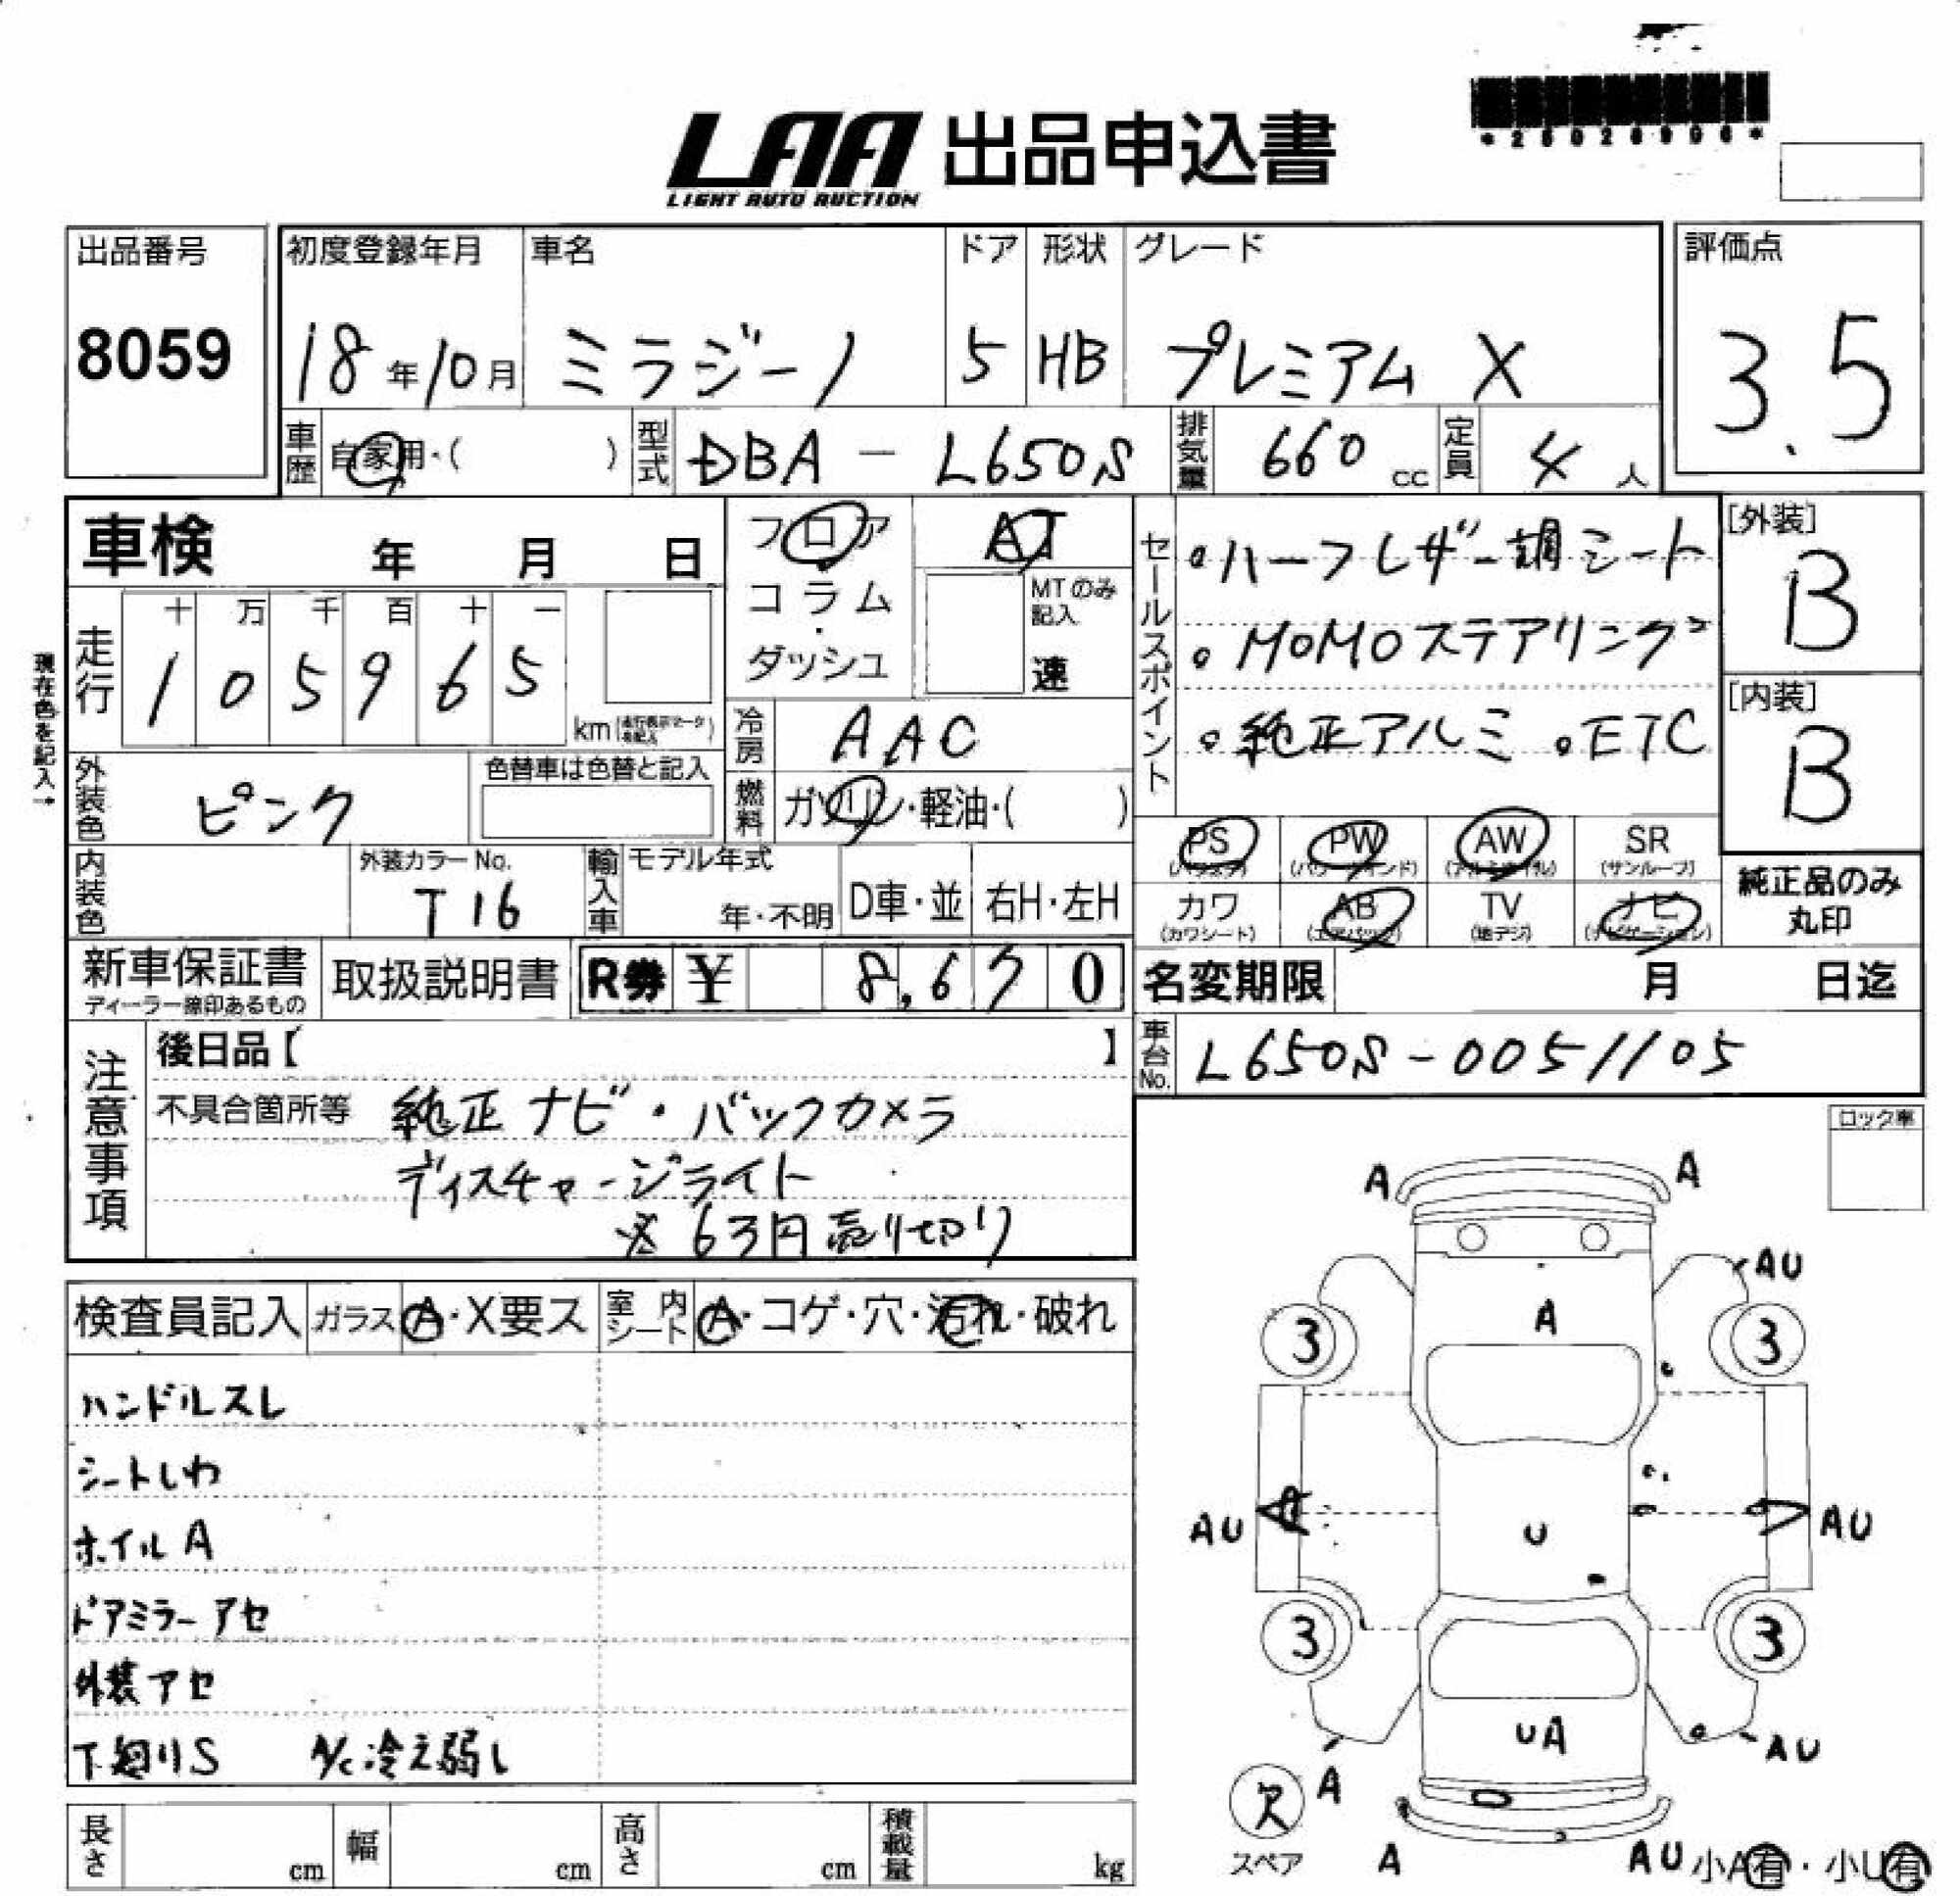 LAA 出品申込書
LIGHT AUTO AUCTION
出品番号
8059
初度登録年月
18年10月
車名
ミラジーノ
ドア
5
形状
HB
グレード
プレミアム X
評価点
3.5
車歴
自家用・( )
型式
DBA-L650S
排気量
660 cc
定員
4 人
車検 年 月 日
フロア
コラム
・
ダッシュ
AT
MTのみ
記入
速
セールスポイント
。ハーフレザー調シート
。MOMOステアリング
。純正アルミ 。ETC
[外装]
B
[内装]
B
現在色を記入→
走行
十 万 千 百 十 一
1 0 5 9 6 5
km
冷房
AAC
外装色
ピンク
色替車は色替と記入
燃料
ガソリン・軽油・( )
PS PW AW SR
(パワステ) (パワーウインド) (アルミホイル) (サンルーフ)
カワ AB TV ナビ
(カワシート) (エアバック) (地デジ) (ナビゲーション)
純正品のみ
丸印
内装色
外装カラーNo.
T16
輸入車
モデル年式
年・不明
D車・並
右H・左H
新車保証書
取扱説明書
R券 ¥ 8,670
名変期限 月 日迄
車台No.
L650S-0051105
注意事項
後日品【 】
不具合箇所等 純正ナビ・バックカメラ
ディスチャージライト
※ 63円売り切り
ロック車
検査員記入 ガラス A・X要ス 室内シート A・コゲ・穴・汚れ・破れ
ハンドルスレ
シートしわ
ホイルA
ドアミラーアセ
外装アセ
下廻りS A/C冷え弱し
A A
AU
A
3 3
AU AU
U
3 3
UA
AU
A
欠
スペア
A
AU
小A有・小U有
長さ cm 幅 cm 高さ cm 積載量 kg